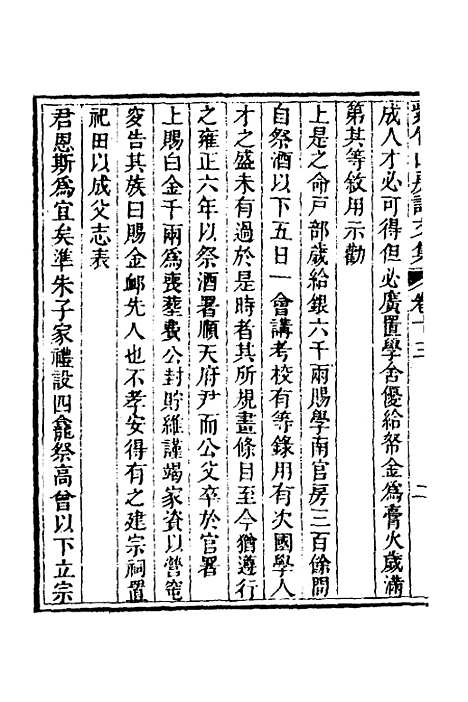 紫竹山房詩文集 卷十三 二
成人才必可得但必廣置學舍優給帑金爲膏火歲滿
第其等敘用示勸
上是之命戸部歲給銀六千兩賜學南官房三百餘間
自祭酒以下五日一會講考校有等錄用有次國學人
才之盛未有過於是時者其所規畫條目至今猶遵行
之雍正六年以祭酒署順天府尹而公父卒於官署
上賜白金千兩爲喪塟費公封貯維謹竭家資以營窀
穸告其族曰賜金䘏先人也不孝安得有之建宗祠置
祀田以成父志表
君恩斯爲宜矣準朱子家禮設四龕祭高曾以下立宗